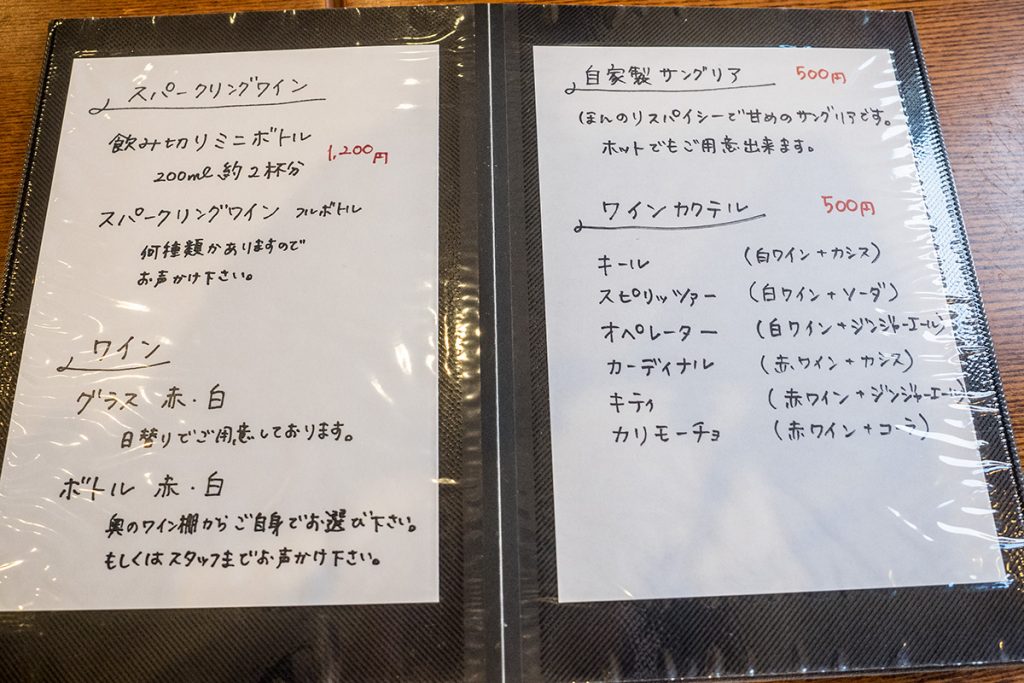 スパークリングワイン
飲み切りミニボトル
200ml 約2杯分
1,200円
スパークリングワイン フルボトル
何種類かありますので
お声かけ下さい。
ワイン
グラス 赤・白
日替りでご用意しております。
ボトル 赤・白
奥のワイン棚からご自身でお選び下さい。
もしくはスタッフまでお声かけ下さい。
自家製サングリア 500円
ほんのりスパイシーで甘めのサングリアです。
ホットでもご用意出来ます。
ワインカクテル 500円
キール (白ワイン+カシス)
スピリッツァー (白ワイン+ソーダ)
オペレーター (白ワイン+ジンジャーエール)
カーディナル (赤ワイン+カシス)
キティ (赤ワイン+ジンジャーエール)
カリモーチョ (赤ワイン+コーラ)